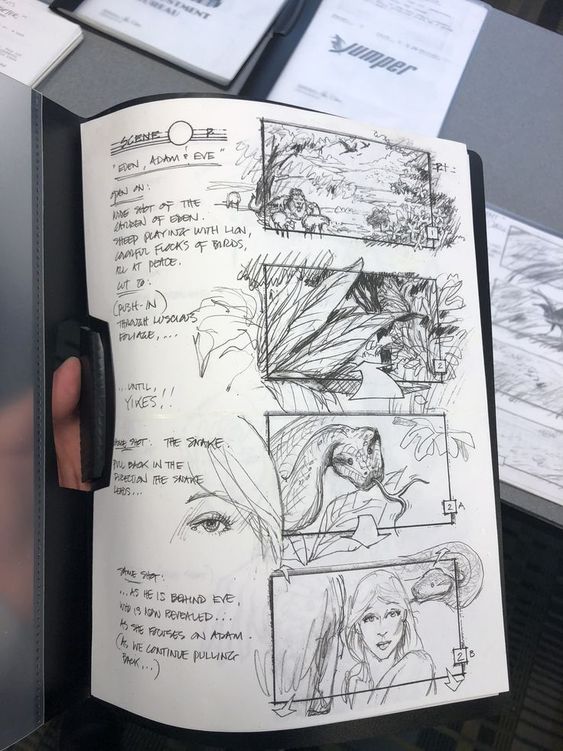 STMENT
BUREAU
Jumper
SCENE 2
"EDEN, ADAM & EVE"
OPEN ON:
WIDE SHOT OF THE
GARDEN OF EDEN.
SHEEP PLAYING WITH LION,
COLORFUL FLOCKS OF BIRDS,
ALL AT PEACE.
CUT TO:
(PUSH-IN)
THROUGH LUSCIOUS
FOLIAGE,...
...UNTIL,
YIKES!!
SAME SHOT: THE SNAKE.
PULL BACK IN THE
DIRECTION THE SNAKE
LEADS...
SAME SHOT:
...AS HE IS BEHIND EVE,
WHO IS NOW REVEALED...
AS SHE FOCUSES ON ADAM.
(AS WE CONTINUE PULLING
BACK,...)
1
2
2 A
2 B